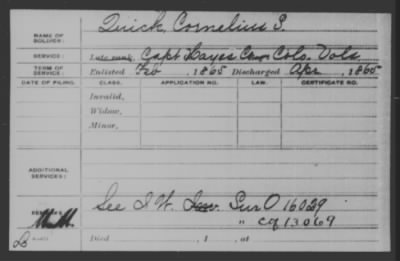 NAME OF SOLDIER: Quick, Cornelius S.
SERVICE: Late rank, Capt Hayes Co, Colo. Vols.
TERM OF SERVICE: Enlisted Feb, 1865 Discharged Apr, 1865
DATE OF FILING. CLASS. APPLICATION NO. LAW. CERTIFICATE NO.
Invalid,
Widow,
Minor,
ADDITIONAL SERVICES:
See I. W. Sur O 16029
" Cf 13069
Died , 1 , at